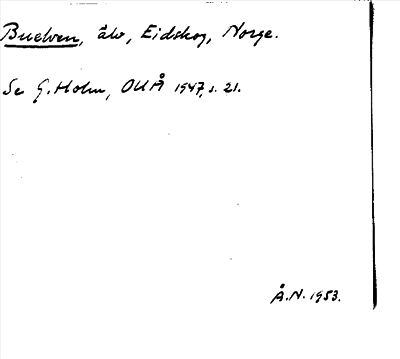 Buelven, älv, Eidskog, Norge.
Se G. Holm, OUÅ 1947, s. 21.
Å.N. 1953.